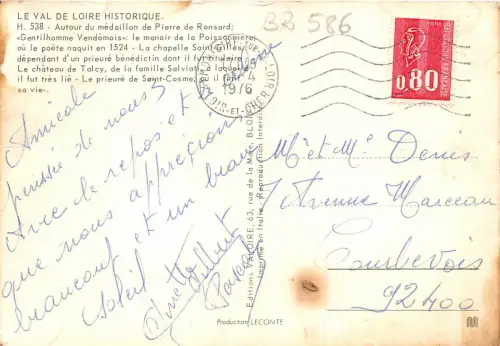 LE VAL DE LOIRE HISTORIQUE.
H. 538 - Autour du médaillon de Pierre de Ronsard;
«Gentilhomme Vendômois»: le manoir de la Poissonnière
où le poète naquit en 1524 - La chapelle Saint-Gilles
dépendant d'un prieuré bénédictin dont il fut titulaire
Le château de Talcy, de la famille Salviati à laquelle
il fut très lié - Le prieuré de Saint-Cosme
sa vie-.
B2 586
1976
LOIR-ET-CHER
POSTES
0,80
REPUBLIQUE FRANÇAISE
Amicale
pensée de nous 2
Avec le repos et le calme
que nous apprécions
beaucoup et un beau
Soleil
M et Me Denis
7 Avenue Marceau
Courbevoie
92400
Editions VALOIRE, 63, rue de la Mare, BLOIS
Imprimé en Italie - Reproduction Interdite
Production LECONTE